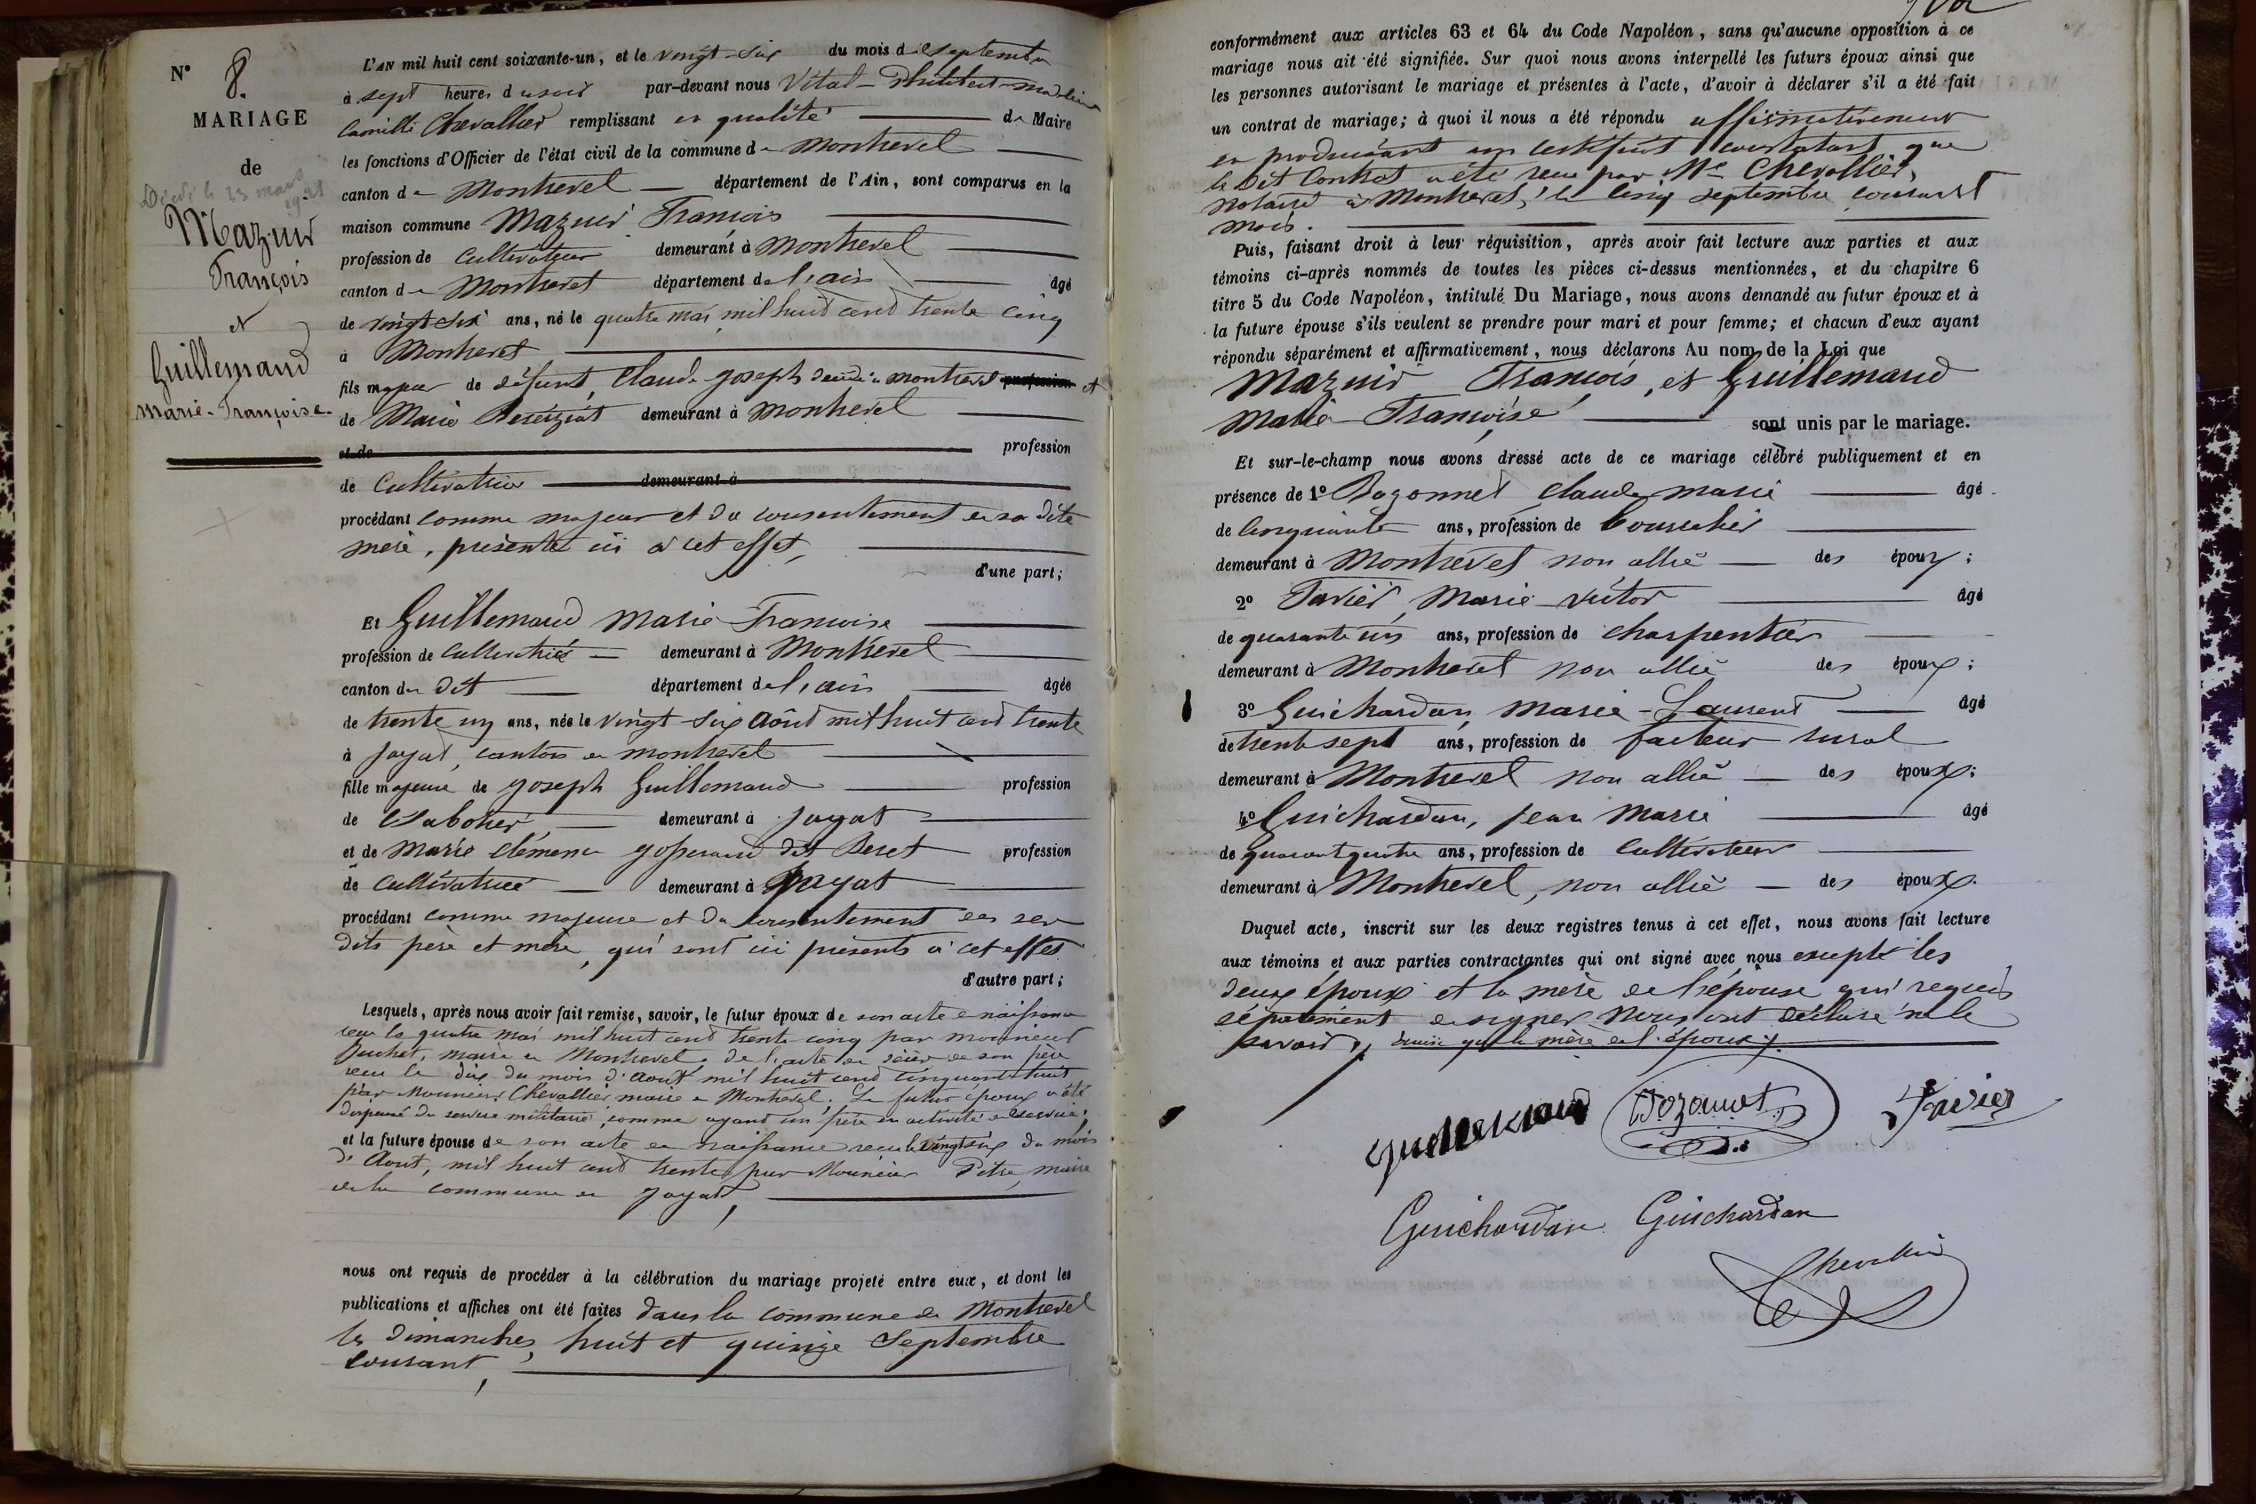 N° 8.
MARIAGE
de
Décédé le 23 mars
Mazuir
François
et
Guillemaud
marie-Françoise.
L'AN mil huit cent soixante-un, et le vingt-six du mois de Septembre
à sept heures du soir par-devant nous Vital-Philibert-
Camille Chevallier remplissant en qualité de Maire
les fonctions d'Officier de l'état civil de la commune de Montrevel
canton de Montrevel département de l'Ain, sont comparus en la
maison commune Mazuir François
profession de Cultivateur demeurant à Montrevel
canton de Montrevel département de l'ain âgé
de vingt six ans, né le quatre mai mil huit cent trente cinq
à Montrevel
fils majeur de défunt, Claude Joseph décédé à montrevel profession et
de Marie demeurant à Montrevel
et de profession
de Cultivatrice demeurant à
procédant comme majeur et du consentement de sa dite
mère, présente ici à cet effet,
d'une part;
Et Guillemaud Marie-Françoise
profession de Cultivatrice demeurant à Montrevel
canton du dit département de l'ain âgée
de trente un ans, née le vingt-six Août mil huit cent trente
à Jayat, canton de montrevel
fille majeure de Joseph Guillemaud profession
de Sabotier demeurant à Jayat
et de Marie Clémence dit Beret profession
de Cultivatrice demeurant à Jayat
procédant comme majeure et du consentement de ses
dits père et mère, qui sont ici présents à cet effet
d'autre part;
Lesquels, après nous avoir fait remise, savoir, le futur époux de son acte de naissance
reçu le quatre mai mil huit cent trente cinq par monsieur
Puchet, maire de Montrevel. de l'acte de décès de son père
reçu le dix du mois d'août mil huit cent cinquante huit
par Monsieur Chevallier maire de Montrevel. Le futur époux a été
dispensé du service militaire, comme ayant un frère en activité de service.
et la future épouse de son acte de naissance reçu le vingt six du mois
d'Aout, mil huit cent trente par Monsieur maire
de la commune de Jayat,
nous ont requis de procéder à la célébration du mariage projeté entre eux, et dont les
publications et affiches ont été faites dans la commune de Montrevel
les dimanches, huit et quinze Septembre
courant,
conformément aux articles 63 et 64 du Code Napoléon, sans qu'aucune opposition à ce
mariage nous ait été signifiée. Sur quoi nous avons interpellé les futurs époux ainsi que
les personnes autorisant le mariage et présentes à l'acte, d'avoir à déclarer s'il a été fait
un contrat de mariage; à quoi il nous a été répondu affirmativement
en produisant un certificat constatant que
le dit Contrat a été reçu par Me Chevallier,
notaire à Montrevel, le cinq septembre courant
mois.
Puis, faisant droit à leur réquisition, après avoir fait lecture aux parties et aux
témoins ci-après nommés de toutes les pièces ci-dessus mentionnées, et du chapitre 6
titre 5 du Code Napoléon, intitulé Du Mariage, nous avons demandé au futur époux et à
la future épouse s'ils veulent se prendre pour mari et pour femme; et chacun d'eux ayant
répondu séparément et affirmativement, nous déclarons Au nom de la Loi que
Mazuir François, et Guillemaud
Marie Françoise sont unis par le mariage.
Et sur-le-champ nous avons dressé acte de ce mariage célébré publiquement et en
présence de 1° Dozonnet Claude marie âgé
de Cinquante ans, profession de Bourrelier
demeurant à Montrevel non allié des époux;
2° Favier Marie-Victor âgé
de quarante un ans, profession de charpentier
demeurant à Montrevel non allié des époux;
3° Guichardan Marie-Laurent âgé
de trente sept ans, profession de facteur rural
demeurant à Montrevel non allié des époux;
4° Guichardan, Jean Marie âgé
de quarante quatre ans, profession de Cultivateur
demeurant à Montrevel, non allié des époux.
Duquel acte, inscrit sur les deux registres tenus à cet effet, nous avons fait lecture
aux témoins et aux parties contractantes qui ont signé avec nous excepté les
deux époux et la mère de l'épouse qui requis
séparément de signer nous ont déclaré ne le
savoir, ainsi que la mère de l'époux.
Guillemaud Dozonnet Favier
Guichardan Guichardan
Chevallier